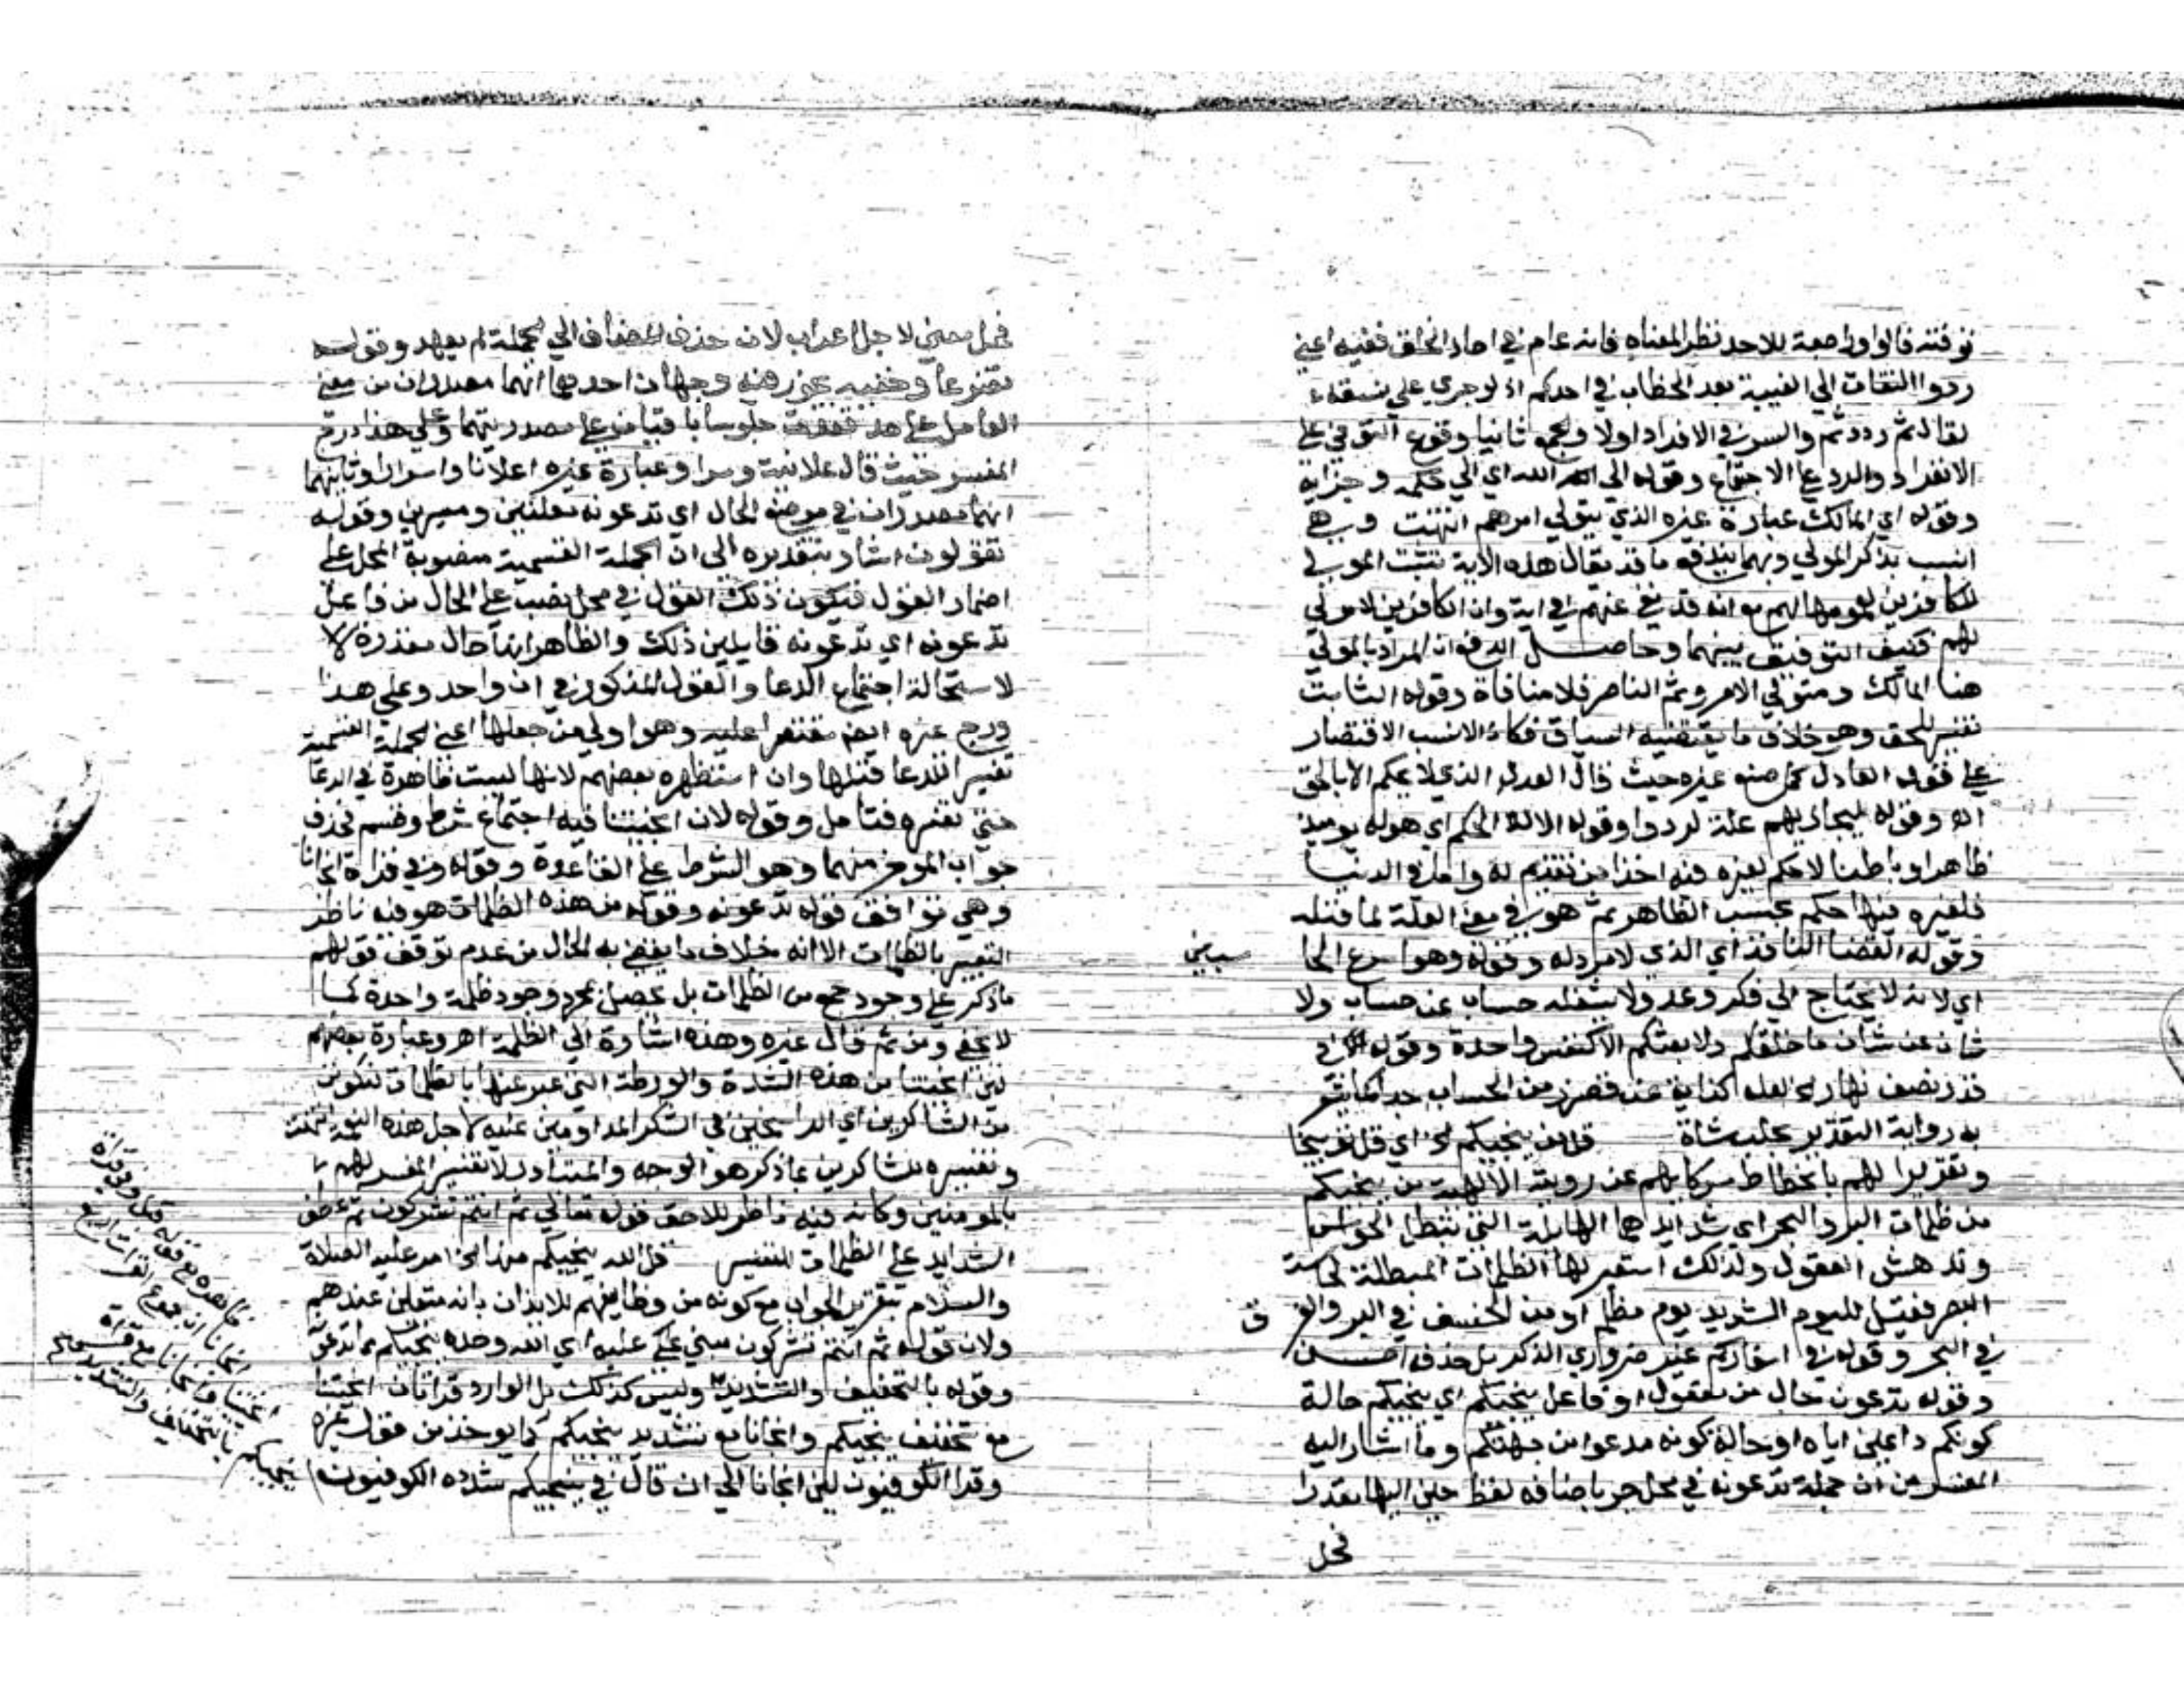 توفته فالواو راجعة للاحد نظرا لمعناه فانه عام في احاد الخلق ففيه اعني
ردوا التفات الى الغيبة بعد الخطاب في احدكم اذ لو جرى على نسقه
لقال ثم رددتم والسر في الافراد اولا والجمع ثانيا وقوع التوفي على
الانفراد والرد على الاجتماع وقوله الى الله اي الى حكمه وجزايه
وقوله اي المالك عبارة غيره الذي يتولى امرهم انتهت وهي
انسب بذكر المولى وبهما يندفع ما قد يقال هذه الاية تثبت المولى
للكافرين لعمومها لهم مع انه قد نفي عنهم في اية وان الكافرين لا مولى
لهم فكيف التوفيق بينهما وحاصل الدفع ان المراد بالمولى
هنا المالك ومتولي الامر وثم الناصر فلا منافاة وقوله الثابت
تفسير للحق وهو خلاف ما يقتضيه السياق فكان الانسب الاقتصار
على قوله العادل كما صنع غيره حيث قال العدل الذي لا يحكم الا بالحق
اه وقوله ليجازيهم علة لردوا وقوله الا له الحكم اي هو له يوميذ
ظاهرا وباطنا لا حكم لغيره فيه اخذا من تقديم له واما في الدنيا
فلغيره فيها حكم بحسب الظاهر ثم هو في معنى العلة لما قبله
وقوله القضا النافذ اي الذي لا مرد له وقوله وهو اسرع الحا سبين
اي لانه لا يحتاج الى فكر وعد ولا يشغله حساب عن حساب ولا
شان عن شان ما خلقكم ولا بعثكم الا كنفس واحدة وقوله في
قدر نصف نهار لعله كناية عن قصر زمن الحساب جدا كما يشعر
به رواية التقدير بحلب شاة قل من ينجيكم الخ اي قل توبيخا
وتقريرا لهم بانحطاط شركايهم عن رتبة الالهية من ينجيكم
من ظلمات البر والبحر اي شدايدهما الهايلة التي تبطل الحواس
وتدهش العقول ولذلك استعير لها الظلمات المبطلة لحاسة
البصر فقيل لليوم الشديد يوم مظلم او من الخسف في البر والغرق
في البحر وقوله في اسفاركم غير ضروري الذكر بل حذفه احسن
وقوله تدعون حال من مفعول او فاعل ينجيكم اي ينجيكم حالة
كونكم داعين اياه او حالة كونه مدعوا من جهتكم وما اشار اليه
المفسر من ان جملة تدعونه في محل جر باضافة لفظ حين اليها مقدرا
فحل
فحل معنى لا حل اعراب لان حذف المضاف الى الجملة لم يعهد وقوله
تضرعا وخفية يجوز فيه وجهان احدهما انهما مصدران من معنى
العامل على حد قعدت جلوسا باقيان على مصدريتهما وعلى هذا درج
المفسر حيث قال علانية وسرا وعبارة غيره اعلانا واسرارا وثانيهما
انهما مصدران في موضع الحال اي تدعونه معلنين ومسرين وقوله
تقولون اشار بتقديره الى ان الجملة القسمية منصوبة المحل على
اضمار القول فيكون ذلك القول في محل نصب على الحال من فاعل
تدعونه اي تدعونه قايلين ذلك والظاهر انها حال مقدرة لا
لاستحالة اجتماع الدعا والقول المذكور في ان واحد وعلى هذا
درج غيره ايضا مقتصرا عليه وهو اولى من جعلها اعني الجملة القسمية
تفسيرا للدعا قبلها وان استظهره بعضهم لانها ليست ظاهرة في الدعا
حتى تفسره فتامل وقوله لان انجيتنا فيه اجتماع شرط وقسم فحذف
جواب الموخر منهما وهو الشرط على القاعدة وقوله وفي قراة انجانا
وهي توافق قوله تدعونه وقوله من هذه الظلمات هو فيه ناظر
التعبير بالظلمات الا انه خلاف ما يقضي به الحال من عدم توقف قولهم
ما ذكر على وجود جمع من الظلمات بل يحصل بمجرد وجود ظلمة واحدة كما
لا يخفى ومن ثم قال غيره وهذه اشارة الى الظلمة اه وعبارة بعضهم
لين انجيتنا من هذه الشدة والورطة التي عبر عنها بالظلمات لنكونن
من الشاكرين اي الراسخين في الشكر المداومين عليه لاجل هذه النعمة انتهت
وتفسيره للشاكرين بما ذكر هو الوجه والمتبادر لا تفسير المفسر لهم
بالمومنين وكانه فيه ناظر للاحق قوله تعالى ثم انتم تشركون ثم عطف
الشدايد على الظلمات للتفسير قل الله ينجيكم منها الخ امر عليه الصلاة
والسلام بتقرير الجواب مع كونه من وظايفهم للايذان بانه متعين عندهم
ولان قوله ثم انتم تشركون مبني عليه اي الله وحده ينجيكم مما تدعون
وقوله بالتخفيف والتشديد وليس كذلك بل الوارد قراتان انجيتنا
مع تخفيف ينجيكم وانجانا مع تشديد ينجيكم كما يوخذ من قول غيره
وقرا الكوفيون لين انجانا الى ان قال في ينجيكم شدده الكوفيون
فهذه مع قوله قبل وفي قراة
انجانا ان مجموع القراات اربع
انجيتنا وانجانا مع قراة
ينجيكم بالتخفيف والتشديد